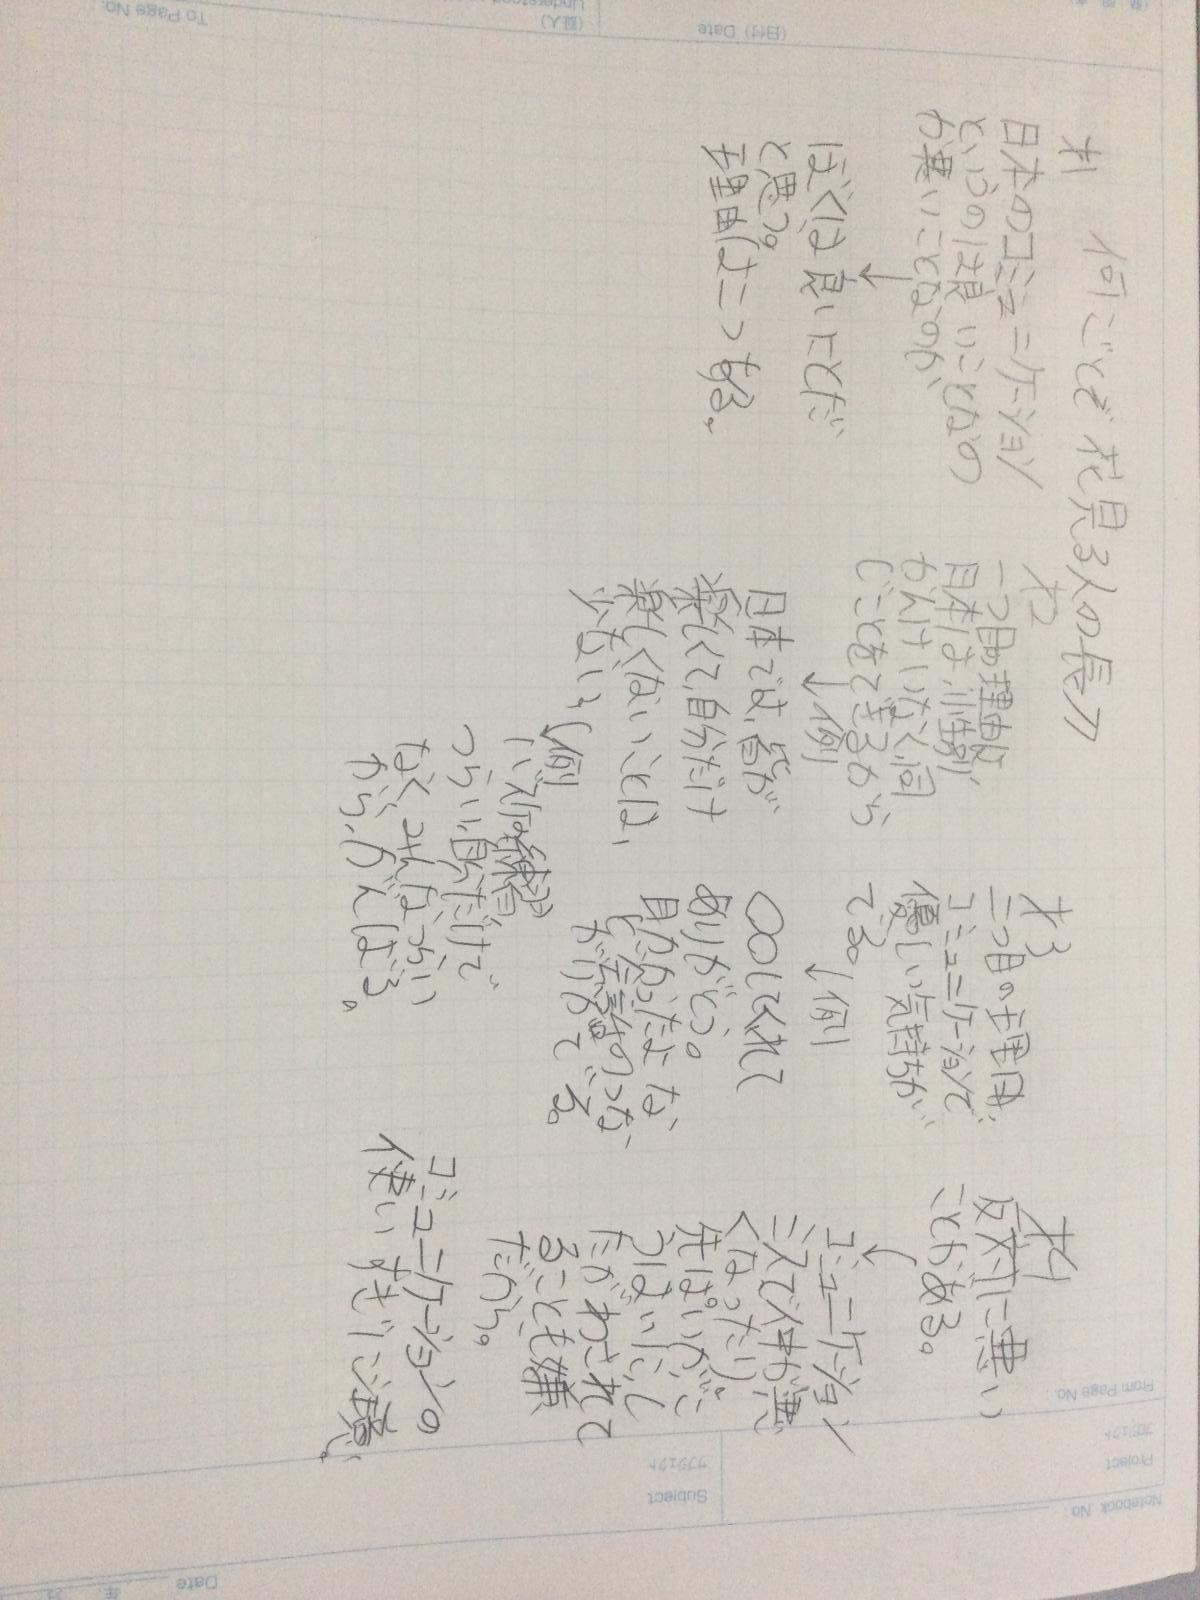 何ごとぞ花見る人の長刀
才1
日本のコミュニケーション
というのは良いことなの
か悪いことなのか、
ぼくは良いことだ
と思う。
理由は二つある。
才2
一つ目の理由は
日本は、小生別
かんけいなく、同
じことをできるから
例
日本では、皆が
楽しくて、自分だけ
楽しくないことは、
少ない。
例
練習
つらい、自分だけで
なくみんなつらい
から、がんばる。
才3
二つ目の理由は
コミュニケーションで
優しい気持ちが
でる。
例
〇〇してくれて
ありがとう。
助かったよ な
ど、会話のつな
がりがでる。
才4
反対に悪い
ことがある。
コミュニケーション
ミスで仲が悪
くなったり、
先ぱいがこ
うはいにし
たがわされて
ることも嫌
だから。
コミュニケーションの
使いすぎに注意。
Notebook No.
Project
プロジェクト
From Page No.
Subject
サブジェクト
Date
年
(日付) Date
(証人)
To Page No.